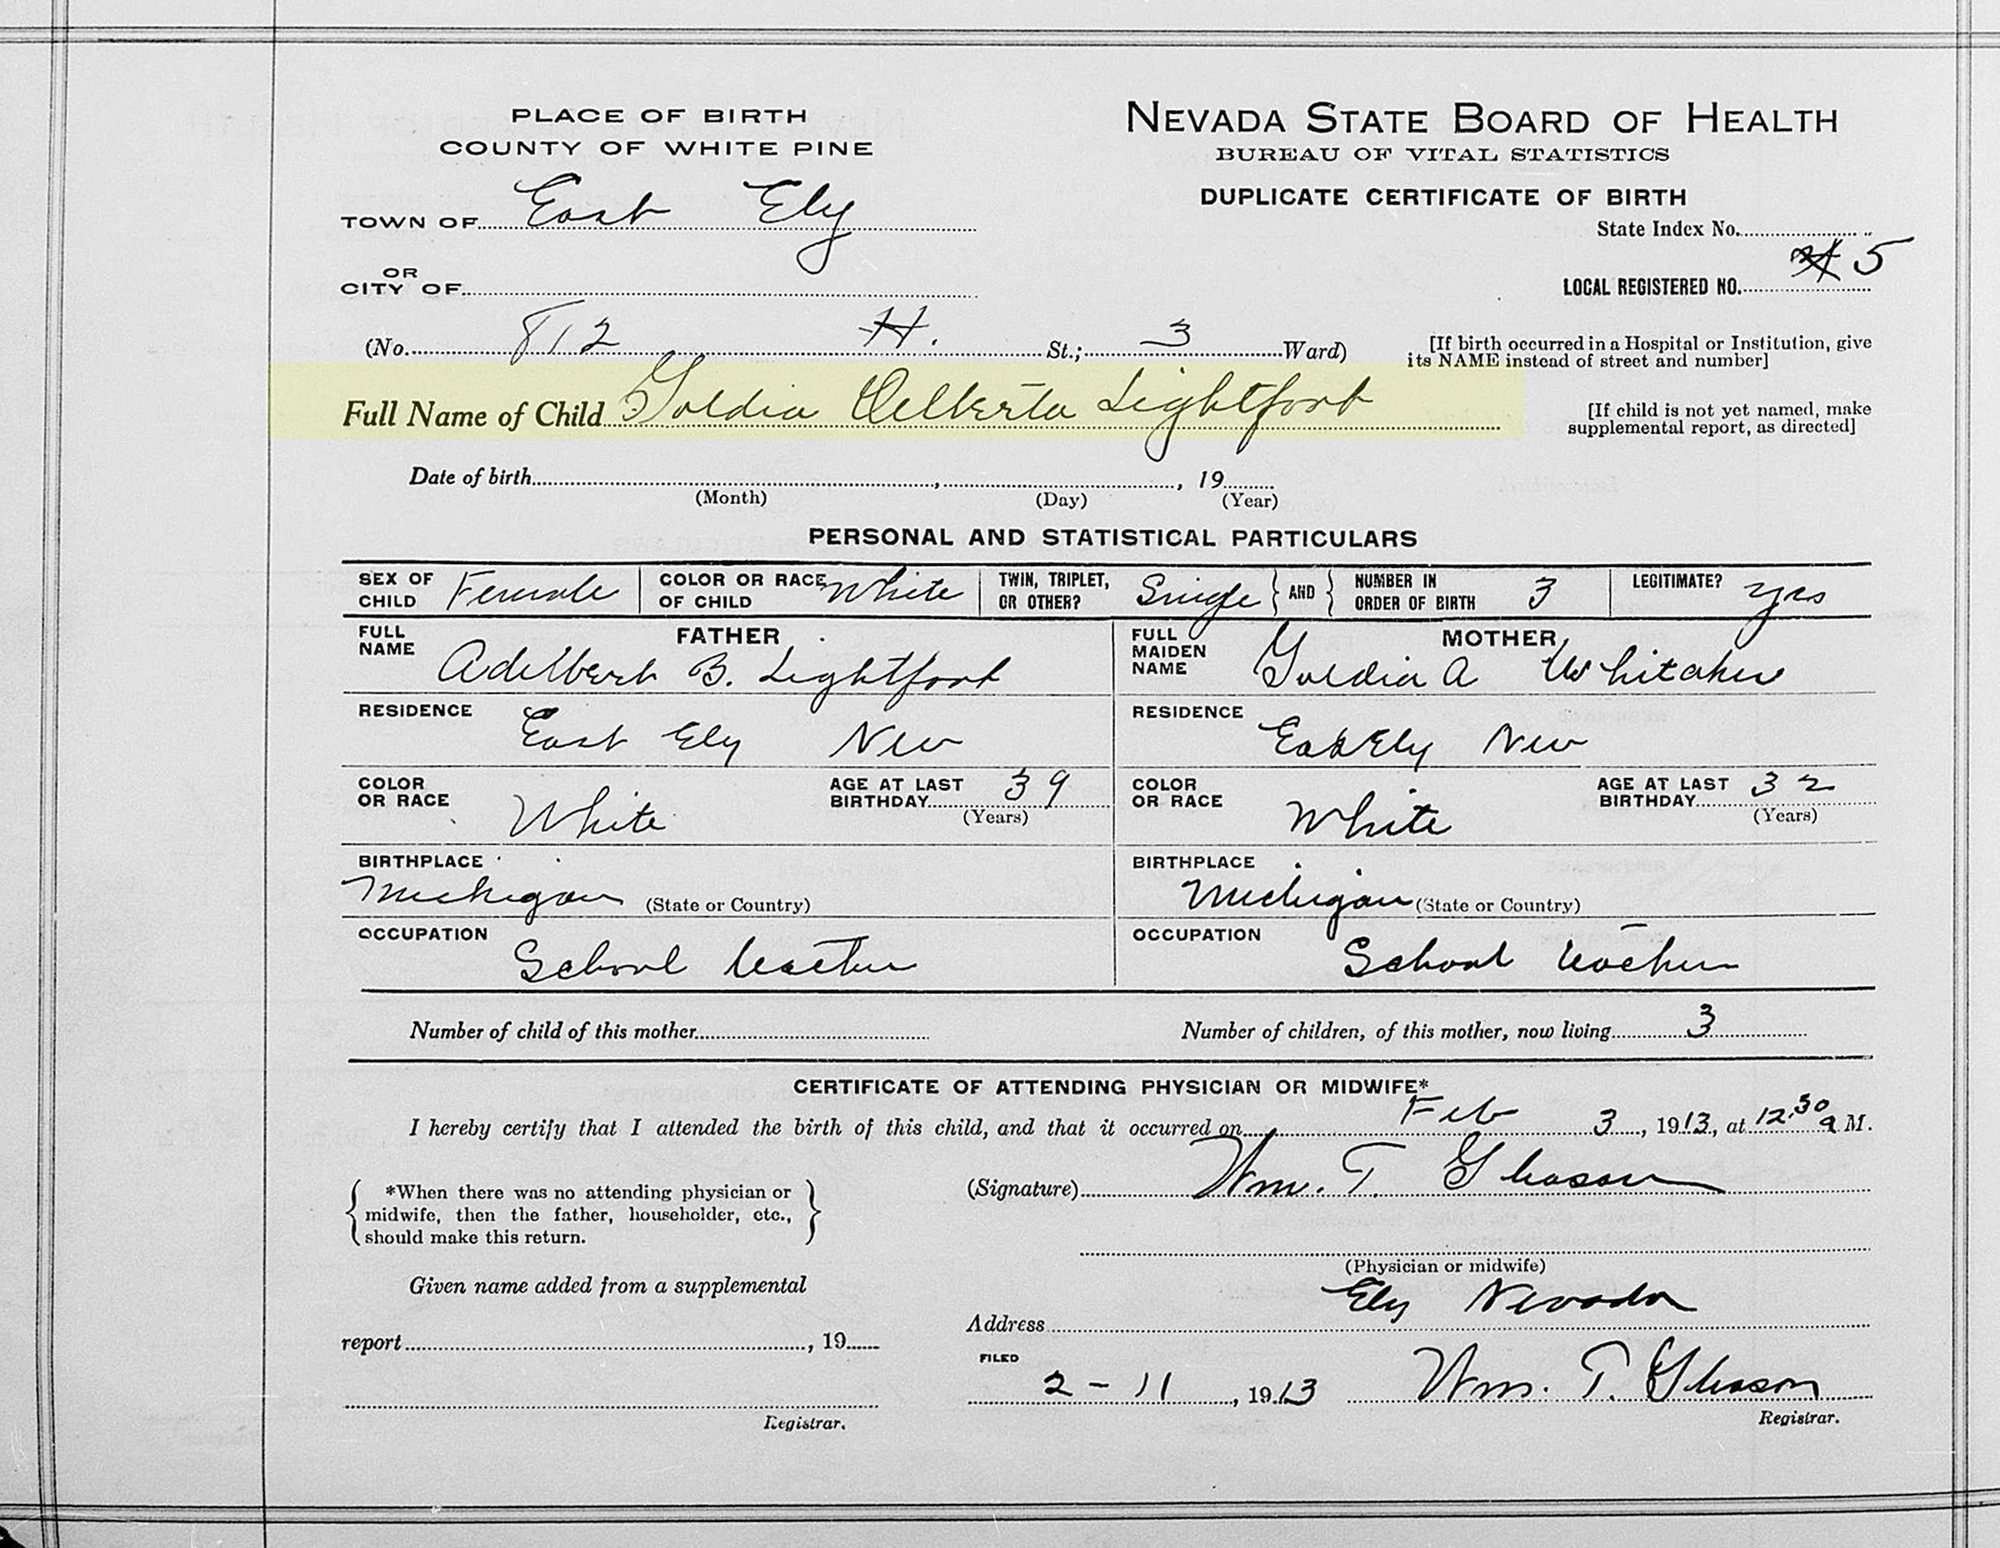 PLACE OF BIRTH
COUNTY OF WHITE PINE
NEVADA STATE BOARD OF HEALTH
BUREAU OF VITAL STATISTICS
DUPLICATE CERTIFICATE OF BIRTH
TOWN OF East Ely
State Index No.
OR
CITY OF
LOCAL REGISTERED NO. 5
(No. 812 H. St.; 3 Ward)
[If birth occurred in a Hospital or Institution, give
its NAME instead of street and number]
Full Name of Child Goldia Delberta Lightfoot
[If child is not yet named, make
supplemental report, as directed]
Date of birth , , 19
(Month) (Day) (Year)
PERSONAL AND STATISTICAL PARTICULARS
SEX OF CHILD Female
COLOR OR RACE OF CHILD White
TWIN, TRIPLET, OR OTHER? Single
AND
NUMBER IN ORDER OF BIRTH 3
LEGITIMATE? yes
FATHER
FULL NAME Adelbert B. Lightfoot
MOTHER
FULL MAIDEN NAME Goldia A Whitaker
RESIDENCE East Ely Nev
RESIDENCE East Ely Nev
COLOR OR RACE White
AGE AT LAST BIRTHDAY 39 (Years)
COLOR OR RACE White
AGE AT LAST BIRTHDAY 32 (Years)
BIRTHPLACE Michigan (State or Country)
BIRTHPLACE Michigan (State or Country)
OCCUPATION School teacher
OCCUPATION School teacher
Number of child of this mother
Number of children, of this mother, now living 3
CERTIFICATE OF ATTENDING PHYSICIAN OR MIDWIFE*
I hereby certify that I attended the birth of this child, and that it occurred on Feb 3, 1913, at 12:30 a M.
*When there was no attending physician or
midwife, then the father, householder, etc.,
should make this return.
(Signature) Wm. T. Gleason
(Physician or midwife)
Given name added from a supplemental
report , 19
Registrar.
Address Ely Nevada
FILED
2-11, 1913 Wm. T. Gleason
Registrar.